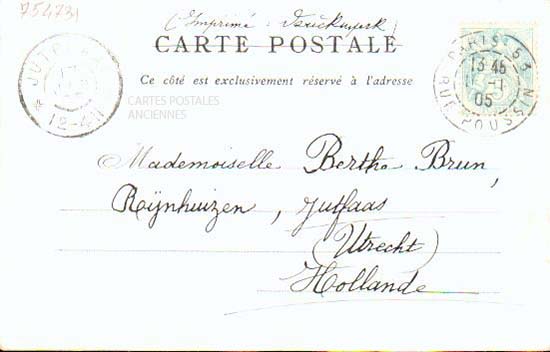 754731
(Imprimé : Drückwerk)
CARTE POSTALE
Ce côté est exclusivement réservé à l'adresse
CARTES POSTALES
ANCIENNES
12-4N
PARIS-53
13 45
05
RUE POUSSIN
Mademoiselle Bertha Brun,
Rijnhuizen, Jutfaas
(Utrecht)
Hollande